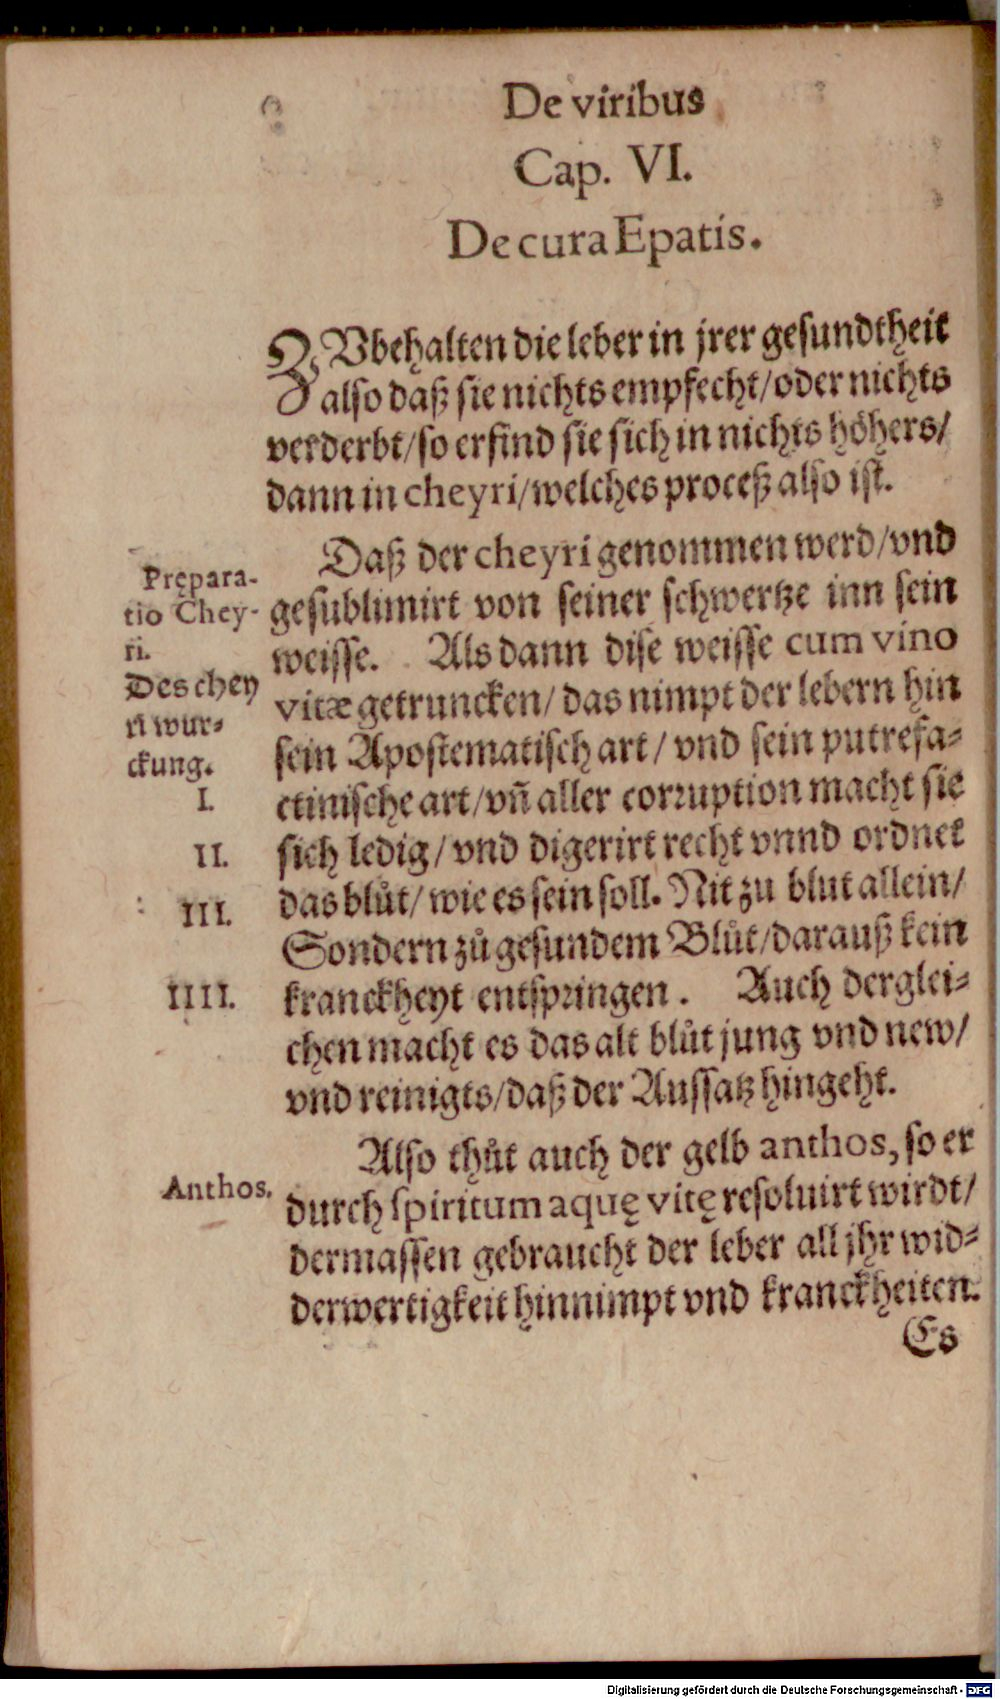 De viribus
Cap. VI.
De cura Epatis.
ZVbehalten die leber in jrer gesundtheit
also daß sie nichts empfecht/oder nichts
verderbt/so erfind sie sich in nichts höhers/
dann in cheyri/welches proceß also ist.
Daß der cheyri genommen werd/vnd
gesublimirt von seiner schwertze inn sein
weisse. Als dann dise weisse cum vino
vitæ getruncken/das nimpt der lebern hin
sein Apostematisch art/vnd sein putrefa-
ctinische art/vñ aller corruption macht sie
sich ledig/vnd digerirt recht vnnd ordnet
das blůt/wie es sein soll. Nit zu blut allein/
Sondern zů gesundem Blůt/darauß kein
kranckheyt entspringen. Auch derglei-
chen macht es das alt blůt jung vnd new/
vnd reinigts/daß der Aussatz hingeht.
Also thůt auch der gelb anthos, so er
durch spiritum aquę vitę resoluirt wirdt/
dermassen gebraucht der leber all jhr wid-
derwertigkeit hinnimpt vnd kranckheiten.
Es
Prępara-
tio Chey-
ri.
Des chey
ri wur-
ckung.
I.
II.
III.
IIII.
Anthos.
Digitalisierung gefördert durch die Deutsche Forschungsgemeinschaft - DFG